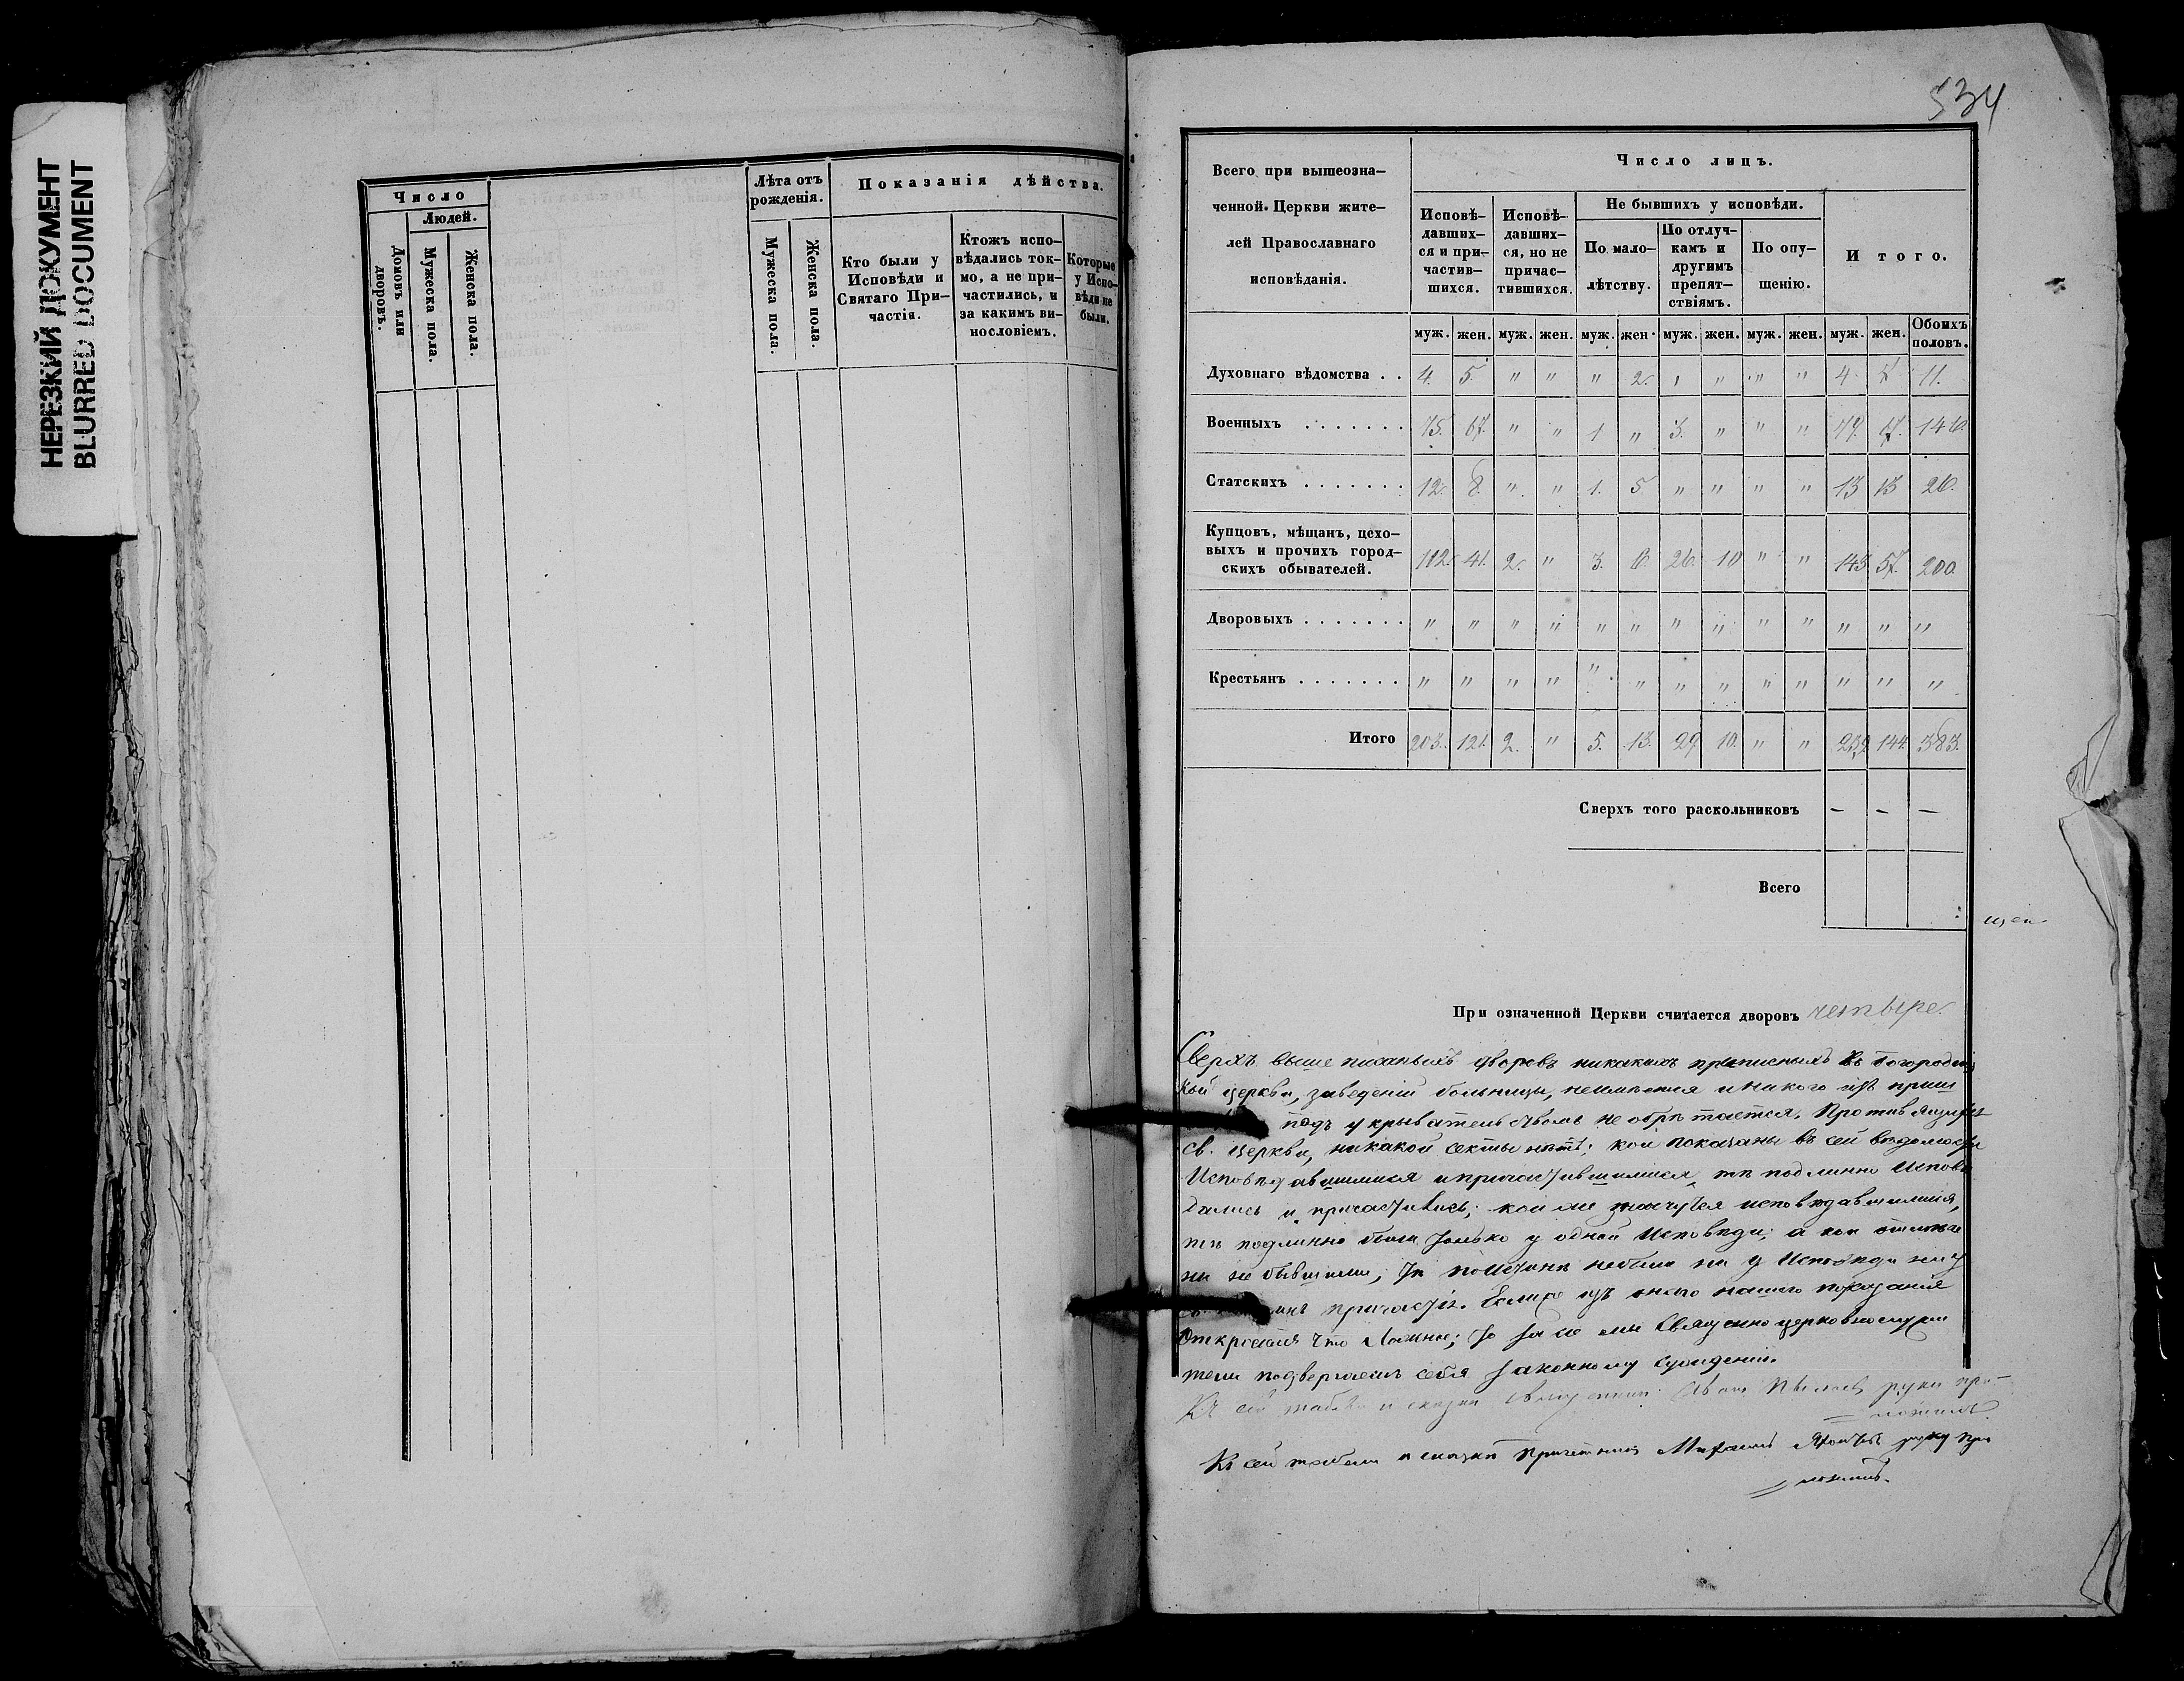 НЕРЕЗКИЙ ДОКУМЕНТ
BLURRED DOCUMENT
Число
Людей.
Домовъ или дворовъ.
Мужеска пола.
Женска пола.
Лѣта отъ рожденія.
Мужеска пола.
Женска пола.
Показанія дѣйства.
Кто были у
Исповѣди и
Святаго При-
частія.
Ктожъ испо-
вѣдались ток-
мо, а не при-
частились, и
за какимъ ви-
нословіемъ.
Которые
у Испо-
вѣди не
были.
534
Всего при вышеозна-
ченной Церкви жите-
лей Православнаго
исповѣданія.
Число лицъ.
Исповѣ-
давших-
ся и при-
частив-
шихся.
Исповѣ-
давших-
ся, но не
причас-
тившихся.
Не бывшихъ у исповѣди.
По мало-
лѣтству.
По отлуч-
камъ и
другимъ
препят-
ствіямъ.
По опу-
щенію.
Итого.
муж. жен. муж. жен. муж. жен. муж. жен. муж. жен. муж. жен. Обоихъ половъ.
Духовнаго вѣдомства . . 4. 5. " " " 2. " " " " 4 7 11.
Военныхъ . . . . . . . 75. 67. " " 1 " 3. " " " 79. 67. 146.
Статскихъ . . . . . . . 12. 8. " " 1. 5 " " " " 13 13 26.
Купцовъ, мѣщанъ, цехо-
выхъ и прочихъ город-
скихъ обывателей. 112. 41. 2. " 3. 6. 26. 10 " " 143 57. 200.
Дворовыхъ . . . . . . . " " " " " " " " " " " " "
Крестьянъ . . . . . . . " " " " " " " " " " " " "
Итого 203. 121. 2. " 5. 13. 29. 10. " " 239. 144. 383.
Сверхъ того раскольниковъ — — —
Всего
При означенной Церкви считается дворовъ четыре.
Сверхъ выше писанныхъ дворовъ никакихъ приписныхъ къ Богородиц
кой церкви, заведеній больницы, неимѣется и никого изъ
подъ укрывательствомъ не обрѣтается. Противъ
св. церкви, никакой секты нѣтъ; кои показаны въ сей вѣдомости
Исповѣдавшимися и причастившимися, тѣ подлинно Исповѣ
дались и причастились; кои же значутся исповѣдавшимися,
тѣ подлинно были только у одной Исповѣди; а кои
ны не бывшими, тѣ небыли ни у Исповѣди ни у
причастія. Ежели изъ онаго нашего показанія
Откроется что Ложное; то за то мы Священно церковнослужи
тели подвергаемъ себя законному сужденію.
Къ сей табели и сказки руку при-
ложилъ.
Къ сей табели и сказки Причетникъ Михаилъ руку при
ложилъ.